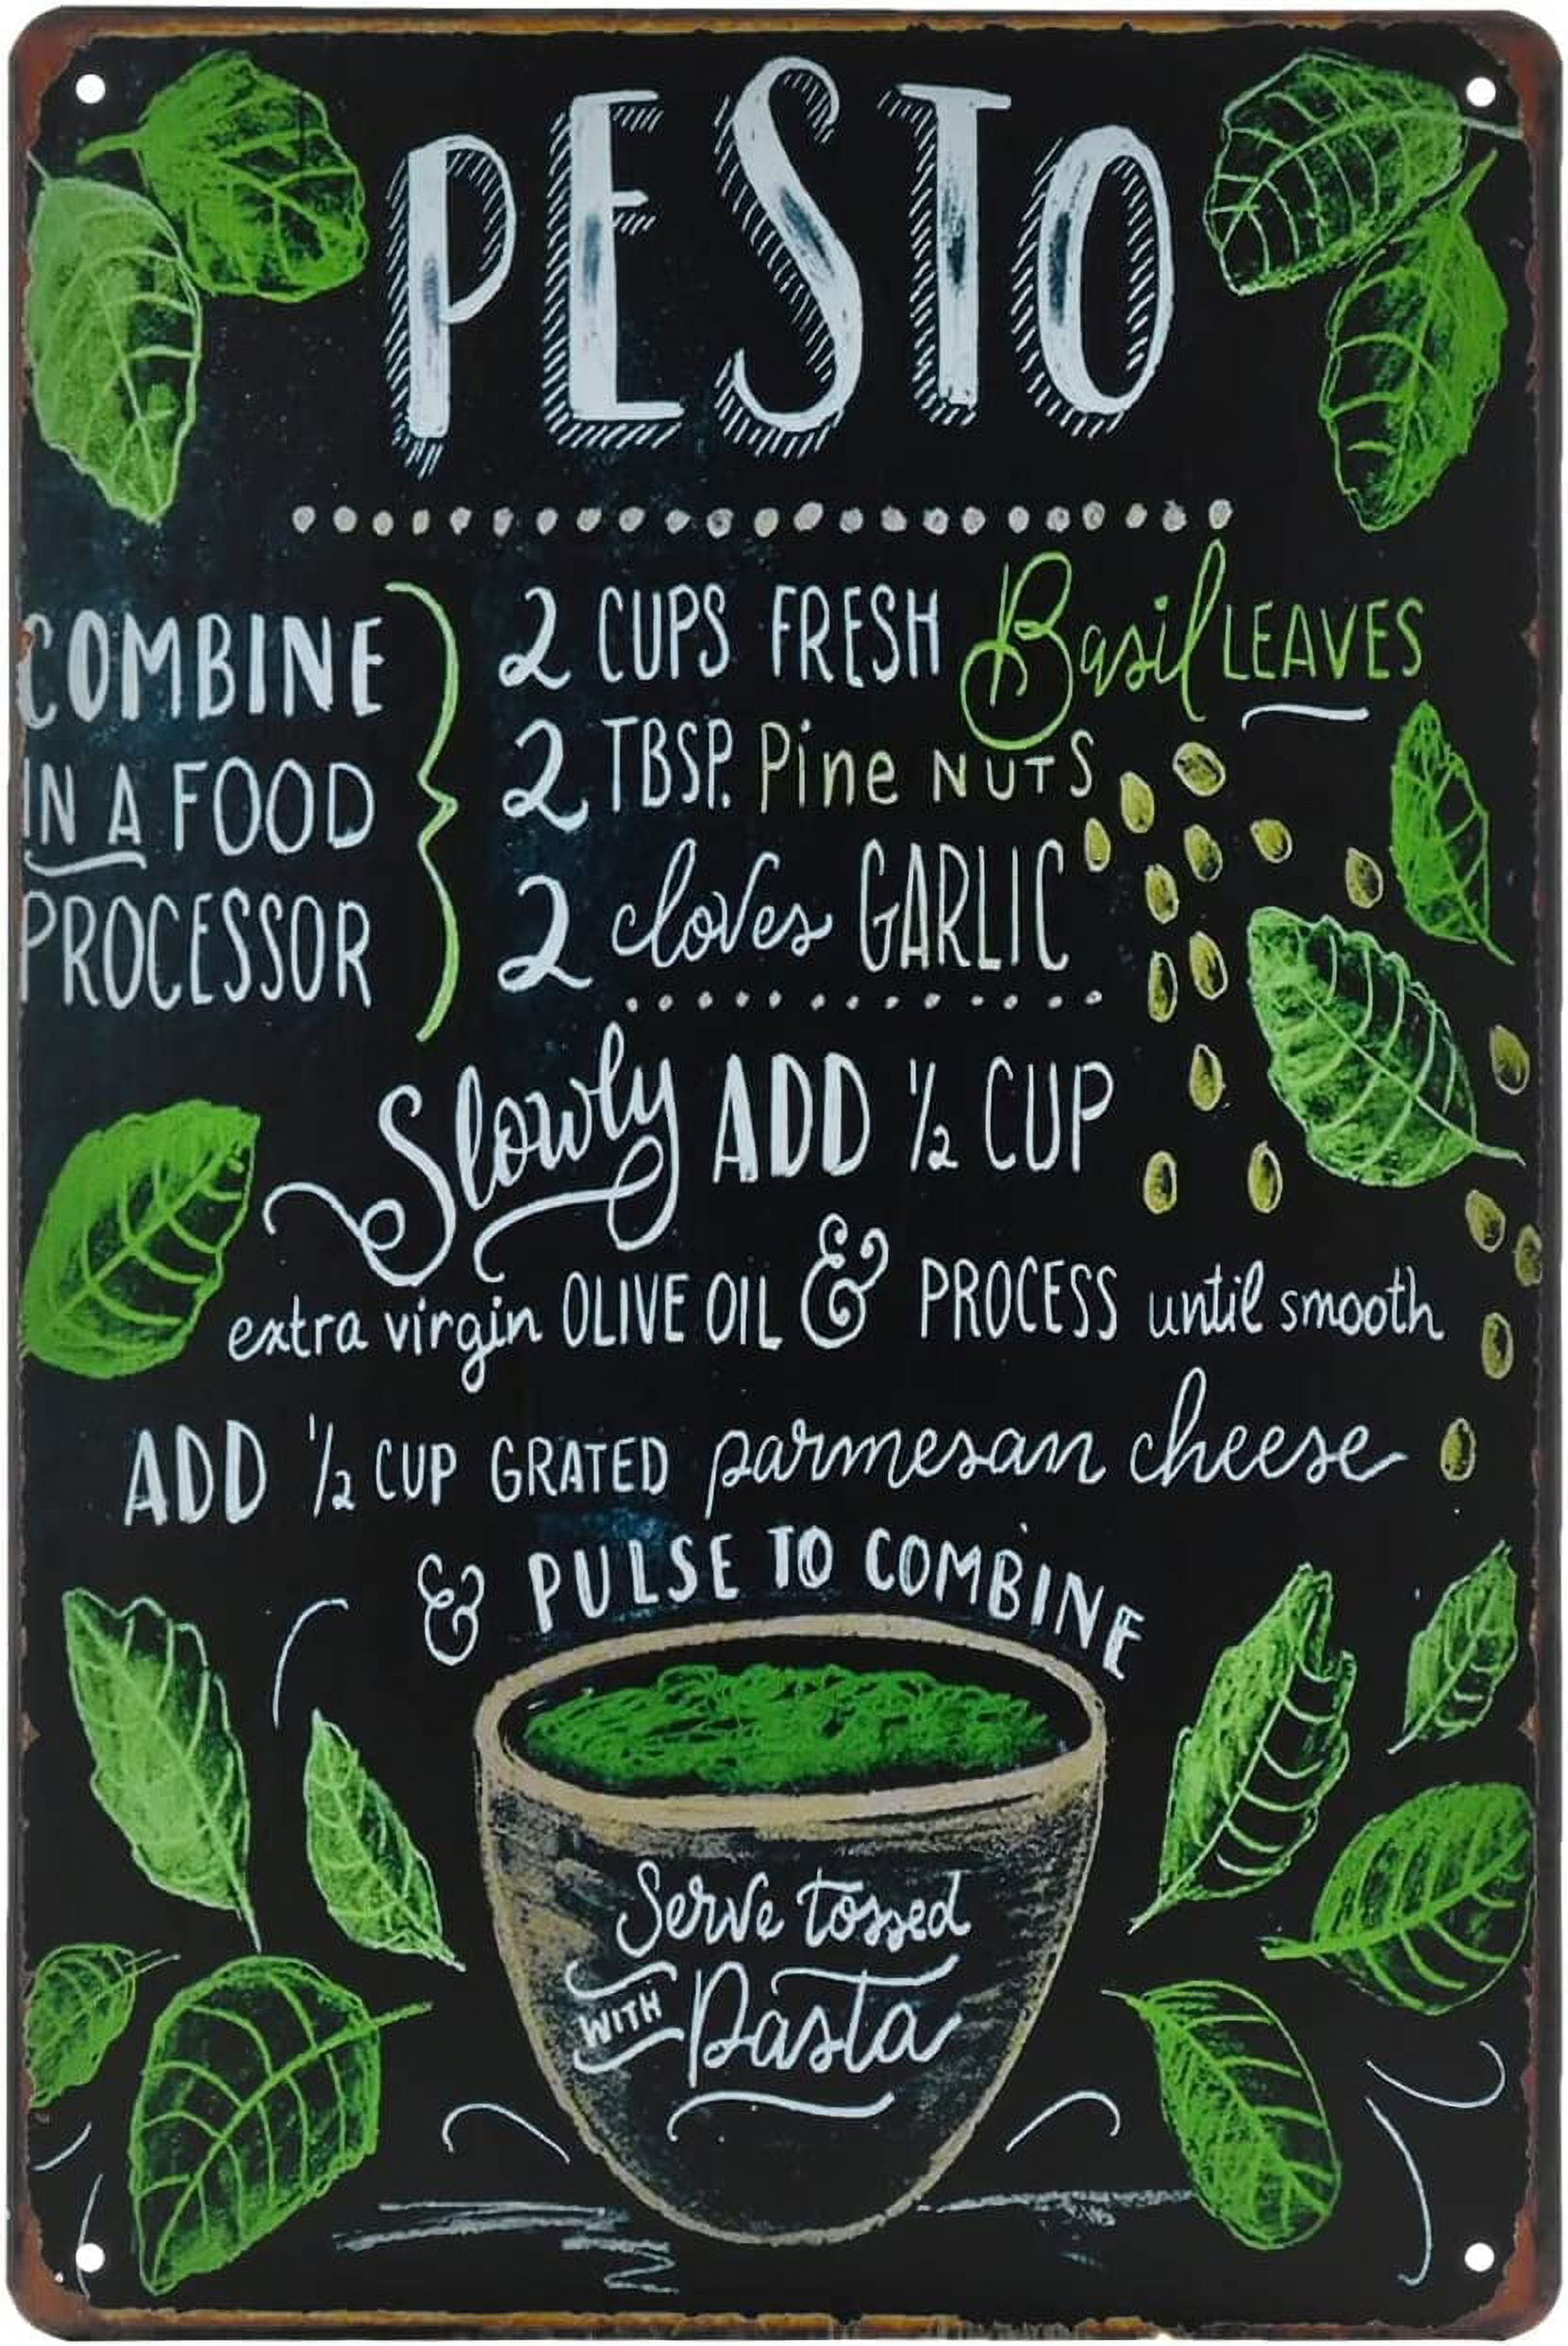 PESTO
COMBINE
IN A FOOD
PROCESSOR
2 CUPS FRESH Basil LEAVES
2 TBSP. Pine NUTS
2 cloves GARLIC
Slowly ADD ½ CUP
extra virgin OLIVE OIL & PROCESS until smooth
ADD ½ CUP GRATED parmesan cheese
& PULSE TO COMBINE
Serve tossed
WITH Pasta